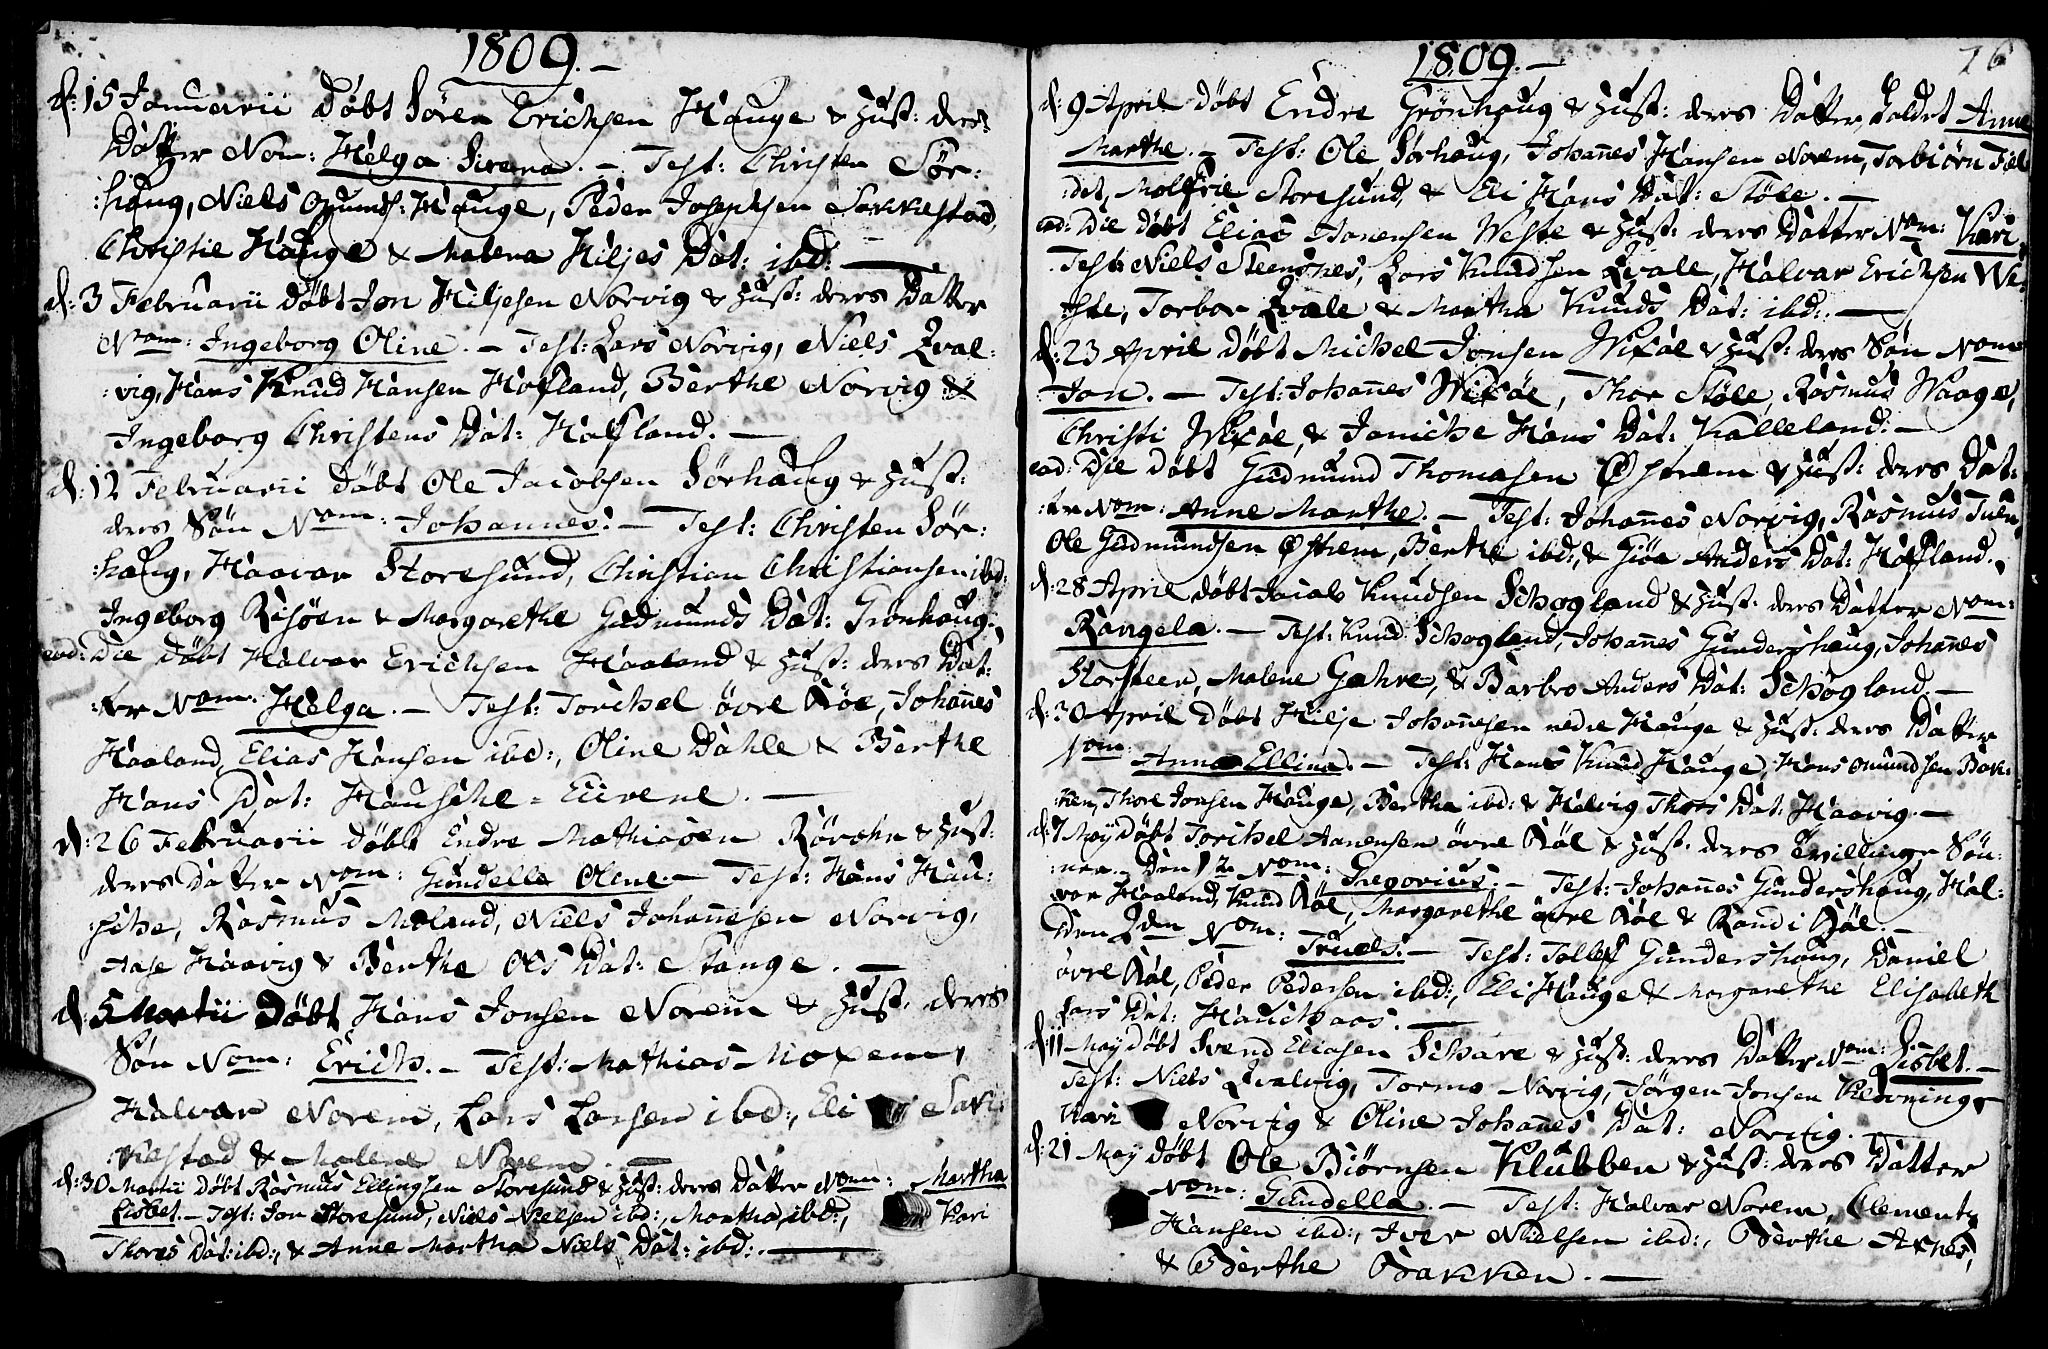 1809.—
d: 15 Januarii Døbt Sören Erichsen Hauge & Hust: deres
Datter Nom: Helga Serena. — Test: Christen Sør:
:haug, Niels Omunds: Hauge, Peder Josephsen Sakkestad,
Christie Hauge & Malena Hiljes Dat: ibd: —
d: 3 Februarii Døbt Jon Hiljesen Norvig & Hust: deres Datter
Nom: Ingeborg Oline. — Test: Lars Norvig, Niels Qval:
:vig, Hans Knud Hansen Hofland, Berthe Norvig &
Ingeborg Christens Dat: Hafland. —
d: 12 Februarii Døbt Ole Jacobsen Sørhaug & Hust:
deres Søn Nom: Johannes. — Test: Christen Sør:
:haug, Haavar Storesund, Christian Christiansen ibd:
Ingeborg Risøen & Margarethe Gudmunds Dat: Grønhaug.
eod: Die Døbt Halvar Erichsen Haaland & Hust: deres Dat:
:ter Nom. Helga. — Test: Torichel övre Røe, Johanes
Haaland, Elias Hansen ibd:, Oline Dahle & Berthe
Hans Dat: Hausche = Eivene. —
d: 26 Februarii Døbt Endre Mathiasen Røvehr & Hust:
deres Datter Nom: Gundella Oline. — Test: Hans Hau:
:sche, Rasmus Moland, Niels Johannesen Norvig,
Aase Haavig & Berthe Ols Dat: Stange. —
d: 5 Martii Døbt Hans Jonsen Norem & Hust: deres
Søn Nom: Erich. — Test: Mathias Moxem,
Halvar Norem, Lars Larsen ibd:, Eli Sak:
:kestad & Malene Norem. —
d: 30 Martii Døbt Rasmus Ellingsen Storesund & Hust: deres Datter Nom: Martha
Lisbet. — Test: Jon Storesund, Niels Nielsen ibd:, Martha ibd:, Kari
Thores Dat: ibd:, & Anne Martha Niels Dat: ibd: —
1809.—
76
d: 9 April Døbt Endre Grønhaug & Hust: deres Datter, kaldet Anne
Marthe. — Test: Ole Sørhaug, Johanes Hansen Norem, Torbiørn Fæl
:det, Molfrie Storesund, & Eli Hans Dat: Støle. —
eod: Die Døbt Elias Aanensen Weste & Hust: deres Datter Nom: Kari.
Test: Niels Steensnes, Lars Knudsen Qvale, Halvar Erichsen We:
:ste, Torbor Qvale & Martha Knuds Dat: ibd: —
d: 23 April Døbt Michel Jonsen Wixøe & Hust: deres Søn Nom
Jon. — Test: Johanes Wixøe, Thor Støle, Rasmus Waage,
Christi Wixøe, & Joniche Hans Dat: Kalleland: —
eod: Die Døbt Gudmund Thomasen Østrem & Hust: deres Dat:
:ter Nom: Anne Marthe. — Test: Johanes Norvig, Rasmus Tuen,
Ole Gudmundsen Østrem, Berthe ibd:, & Giøa Anders Dat: Hofland.
d: 28 April Døbt Jacob Knudsen Schogland & Hust: deres Datter Nom:
Rangela. — Test: Knud Schogland, Johanes Gundershaug, Johanes
Storsteen, Malene Gahre, & Barbro Anders Dat: Schogland. —
d: 30 April Døbt Hilje Johanesen nedre Hauge & Hust: deres Datter
Nom: Anna Ellina. — Test: Hans Knud Hauge, Hans Omundsen Bak:
:ken, Thore Jonsen Hauge, Bertha ibd: & Helvig Thors Dat: Haavig. —
d: 7 May Døbt Torichel Aanensen övre Røe & Hust: deres Tvillinge Søn:
:ner. Den 1te Nom: Gregorius. — Test: Johannes Gundershaug, Hal:
:vor Haaland, Knud Røe, Margarethe övre Røe & Randi Røe. —
Den 2den Nom: Truels. — Test: Tollef Gundershaug, Daniel
övre Røe, Peder Pedersen ibd:, Eli Hauge & Margarethe Elisabeth
Lars Dat: Hauchaas. —
d: 11 May Døbt Svend Eliasen Schare & Hust: deres Datter Nom: Lisbet. —
Test: Niels Qvalvig, Tormo Norvig, Jørgen Jonsen Kedvning,
Kari Norvig & Oline Johanes Dat: Norvig. —
d: 21 May Døbt Ole Biørnsen Klubben & Hust: deres Datter
Nom: Gundella. — Test: Halvar Norem, Clement
Hansen ibd:, Iver Nielsen ibd:, Berthe Arnes,
& Berthe Bakken. —